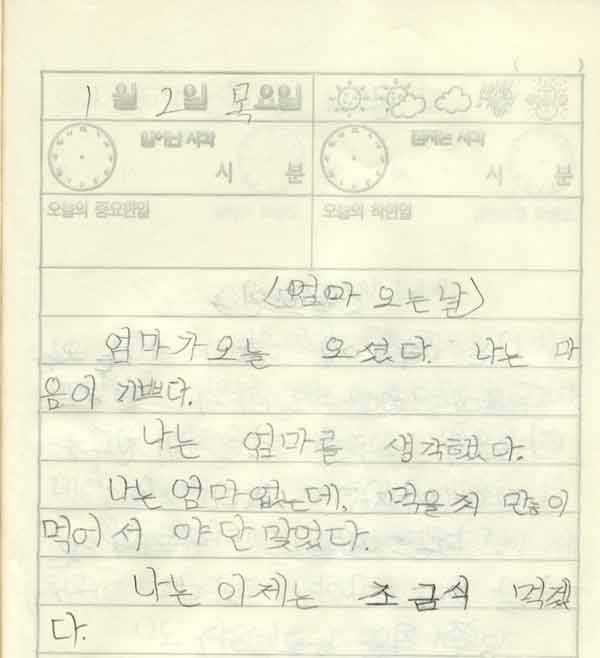 ( )
1 월 2 일 목요일
일어난 시각 잠자는 시각
시 분 시 분
오늘의 중요한일 오늘의 착한일
<엄마 오는날>
엄마가 오늘 오셨다. 나는 마
음이 기쁘다.
나는 엄마를 생각했다.
나는 엄마 없는데, 먹을 만능이
먹어서 야단 맞았다.
나는 이제는 조금식 먹겠
다.